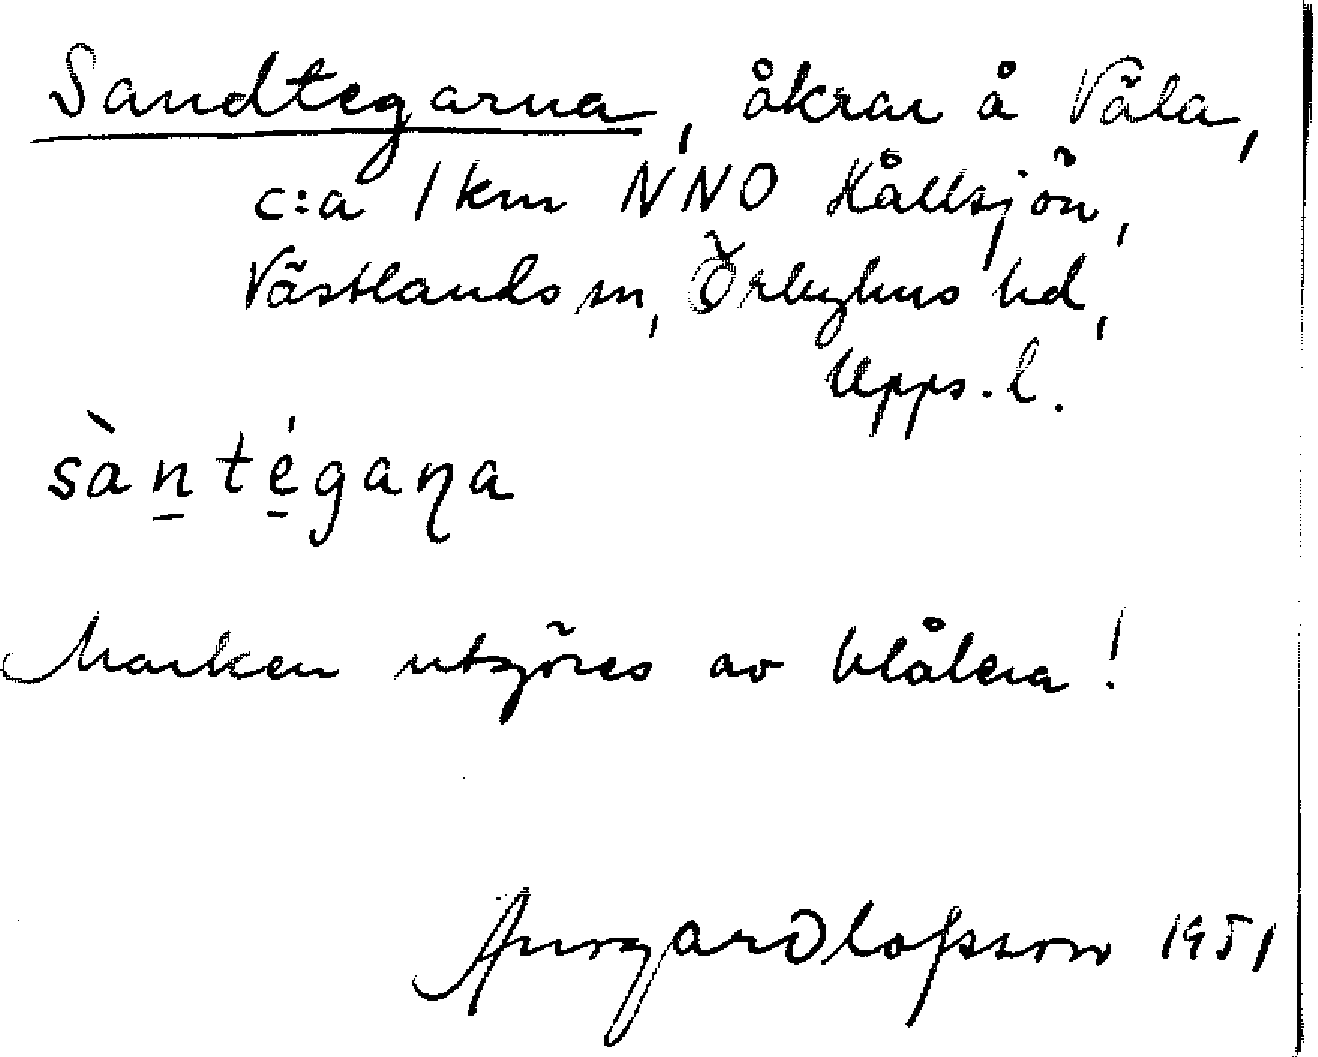 Sandtegarna, åkrar å Väla,
c:a 1 km NNO Hållsjön,
Västlands sn, Örbyhus hd,
Upps. l.
sàn̠té̠gaɳa
Marken utgöres av blålera!
Olofsson 1951